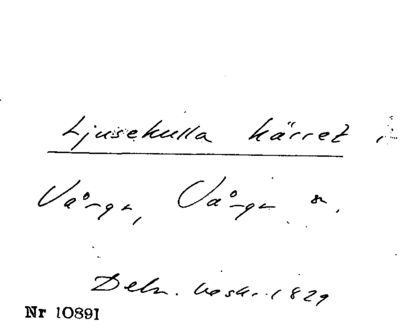 Ljusekulla kärret,
Vånga, Vånga sn.
Deln. beskr. 1829
Nr 10891